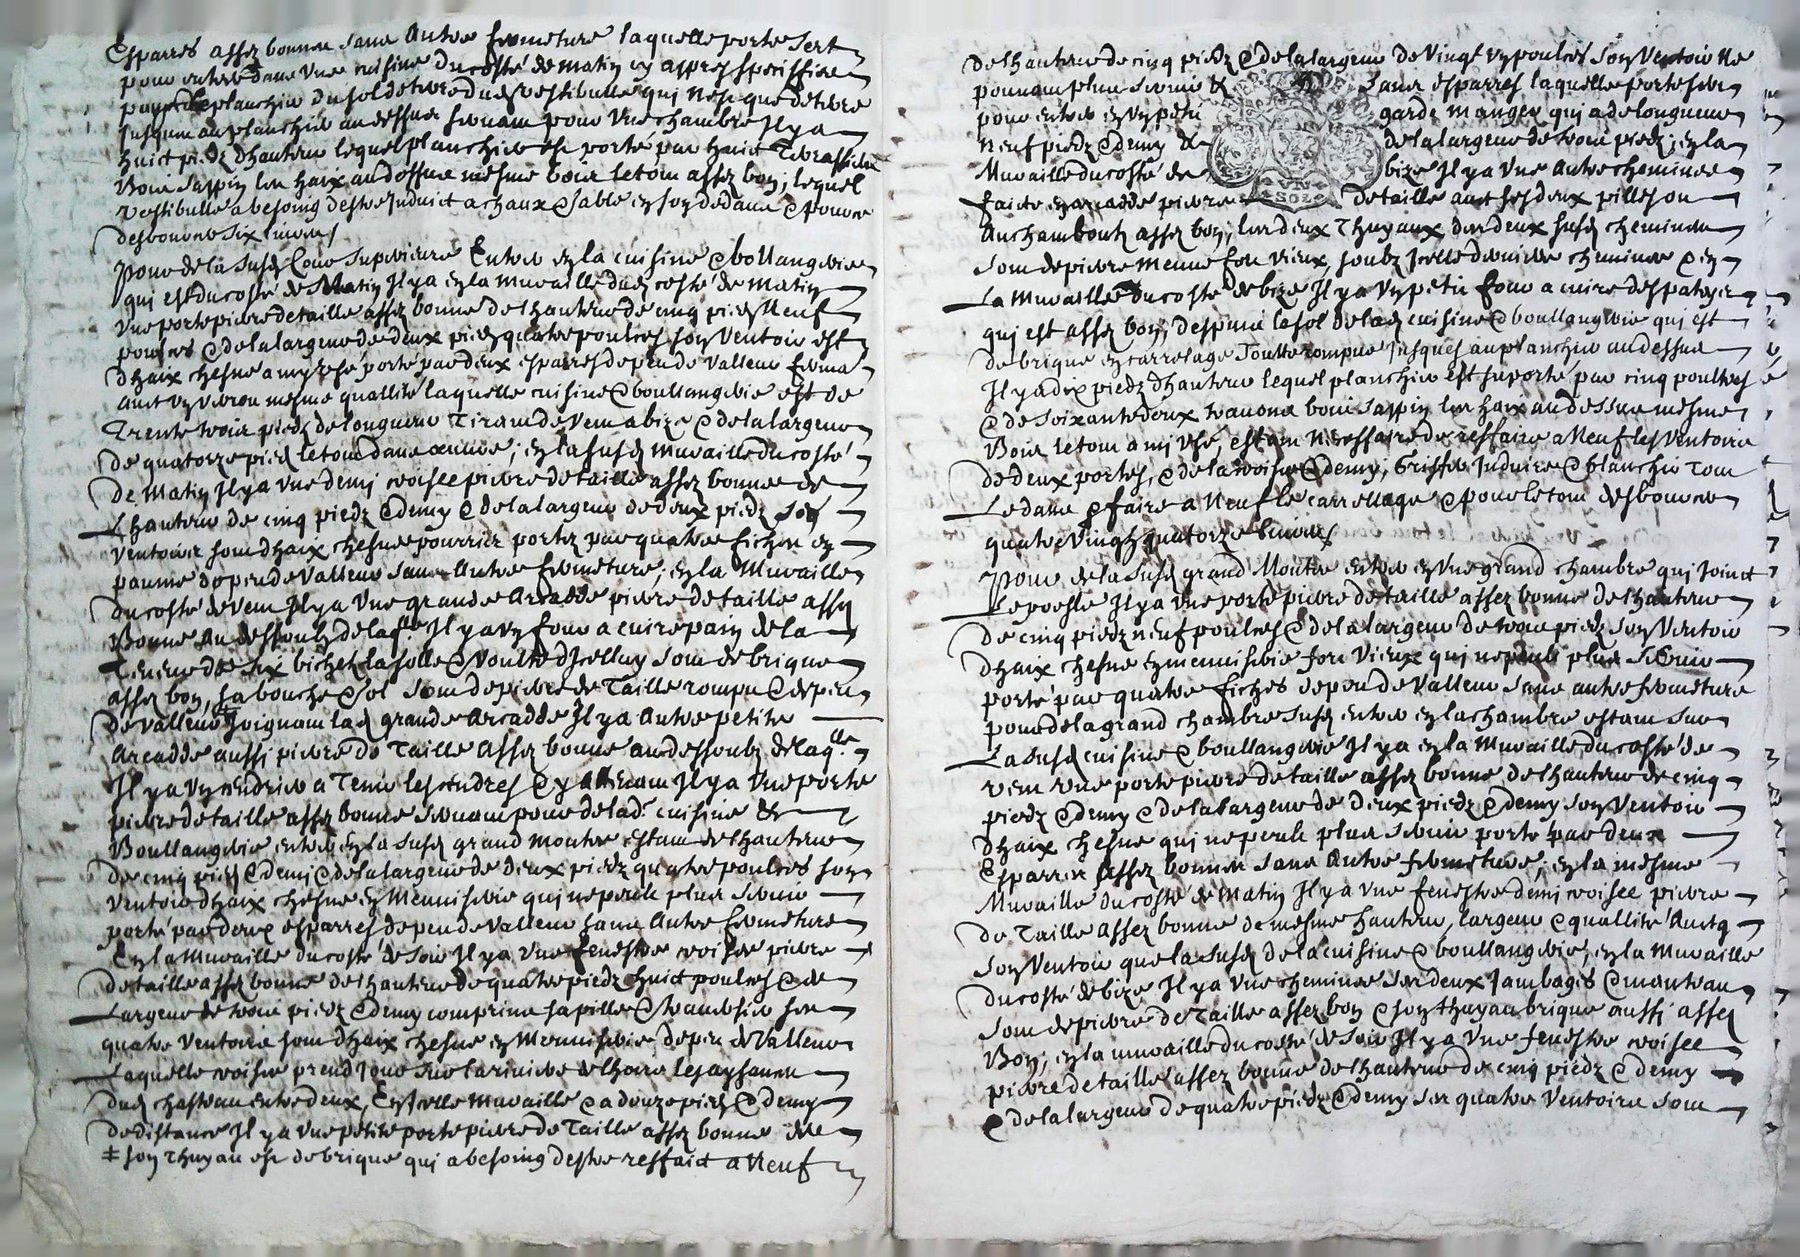 Esparres assez bonnes sans autre fermeture laquelle porte sert
pour entrer dans une cuisine du costé de matin cy appres speciffiee
planchier du sol de terre dud vestibulle qui n'est que de terre
jusques au planchier au dessus servant pour une chambre Il y a
huict piedz d'hauteur lequel planchier est porté par huict
Bois sappin les haix au dessus mesme bois le tout assez bon; lequel
vestibulle a besoing destre induict a chaux & sable en son dedans & pour ce
desbourser six livres /
Pour de la susd Cour superieure Entrer en la cuisine & boullangerie
qui est du costé de Matin Il y a en la muraille dud costé de matin
une porte pierre de taille assez bonne de l'hauteur de cinq piedz Neuf
poulces & de la largeur de deux piedz quatre poulces son Ventoir est
d'haix chesne a my usé porté par deux esparres de peu de valleur ferma
avec un verou mesme quallité laquelle cuisine & boullangerie est de
Trente trois piedz de longueur Tirant de vent a bize & de la largeur
de quatorze piedz le tout dans oeuvre; en la susd muraille du costé
de Matin Il y a une demi croisee pierre de taille assez bonne de
L'hauteur de cinq piedz & demy & de la largeur de deux piedz ses
ventoirs sont d'haix chesne pourriez portez par quatre fiches en
paume de peu de valleur sans Autre fermeture; en la Muraille
du costé de vent Il y a Une grande Arcadde pierre de taille assez
Bonne au dessoubz de laqlle Il y a un four a cuire pain de la
Teneur de six bichets la solle & voulte d'Icelluy sont de brique
assez bon, sa bouche & sol sont de pierre de Taille rompu & de peu
de valleur Joignant lad grande Arcadde Il y a Autre petite
Arcadde aussi pierre de Taille assez bonne au dessoubz de laqlle
Il y a un cendrier a Tenir les cendres & y attenant Il y a Une porte
pierre de taille assez bonne servant pour de lad cuisine &
Boullangerie entrer en la susd grand montee estant de l'hauteur
de cinq piedz & demi & de la largeur de deux piedz quatre poulces son
ventoir d'haix chesne en Menuiserie qui ne peult plus servir
porté par deux esparres de peu de valleur sans Autre fermeture
En la Muraille du costé de soir Il y a Une fenestre croisee pierre
de taille assez bonne de l'hauteur de quatre piedz huict poulces & de
Largeur de trois piedz & demy comprins sa pille & traversier ses
quatre ventoirs sont d'haix chesne en Menuiserie de peu de valleur
Laquelle croisee prend jour sur la riviere
dud chasteau entre deux, En icelle Muraille & a douze piedz & demy
de distance Il y a Une petite porte pierre de Taille assez bonne de
‡ son Thuyau est de brique qui a besoing destre reffaict a Neuf
de l'hauteur de cinq piedz & de la largeur de vingt un poulces son Ventoir ne
pouvant plus servir & sans esparres laquelle porte sert
pour entrer en un petit garde manger qui a de longueur
neuf piedz & demy & de la largeur de trois piedz; en la
Muraille du costé de bize Il y a Une autre cheminee
faicte en arcadde pierre de taille avec ses deux pilles ou
assez bon, les deux Thuyaux des deux susd cheminees
sont de pierre menue fort vieux, soubz Icelle derniere cheminee & en
La Muraille du costé de bize Il y a un petit four a cuire des patez
qui est assez bon; despuis le sol de lad cuisine & boullangerie qui est
de brique en carrelage Toutte rompue Jusques au planchier au dessus
Il y a dix piedz d'hauteur lequel planchier est suporté par cinq poultres
& de soixante deux travons bois sappin les haix au dessus mesme
Bois le tout a mi usé, estant Necessaire de reffaire a Neuf les Ventoirs
de deux portes, & de la croisee & demy, Griffer Induire & blanchir Tout
Le dans & faire a Neuf le carrellage & pour le tout desbourser
quatre vingtz quatorze livres /
Pour de la susd grand Montee entrer en Une grand chambre qui joinct
Le poesle Il y a Une porte pierre de taille assez bonne de l'hauteur
de cinq piedz neuf poulces & de la largeur de trois piedz son Ventoir
d'haix chesne en menuiserie fort vieux qui ne peult plus servir
porté par quatre fiches de peu de valleur sans autre fermeture
pour de la grand chambre susd entrer en la chambre estant sur
La susd cuisine & boullangerie Il y a en la Muraille du costé de
vent Une porte pierre de taille assez bonne de l'hauteur de cinq
piedz & demy & de la largeur de deux piedz & demy son Ventoir
d'haix chesne qui ne peult plus servir porté par deux
Esparres assez bonnes sans Autre fermeture; en la mesme
Muraille du costé de Matin Il y a une fenestre demi croisee pierre
de Taille assez bonne de mesme hauteur, largeur & quallité
son Ventoir que la susd de la cuisine & boullangerie, en la muraille
du costé de bize Il y a une cheminee ses deux Jambages & manteau
sont de pierre de Taille assez bon & son thuyau brique aussi assez
Bon; en la muraille du costé de soir Il y a Une fenestre croisee
pierre de taille assez bonne de l'hauteur de cinq piedz & demy
& de la largeur de quatre piedz & demy ses quatre Ventoirs sont